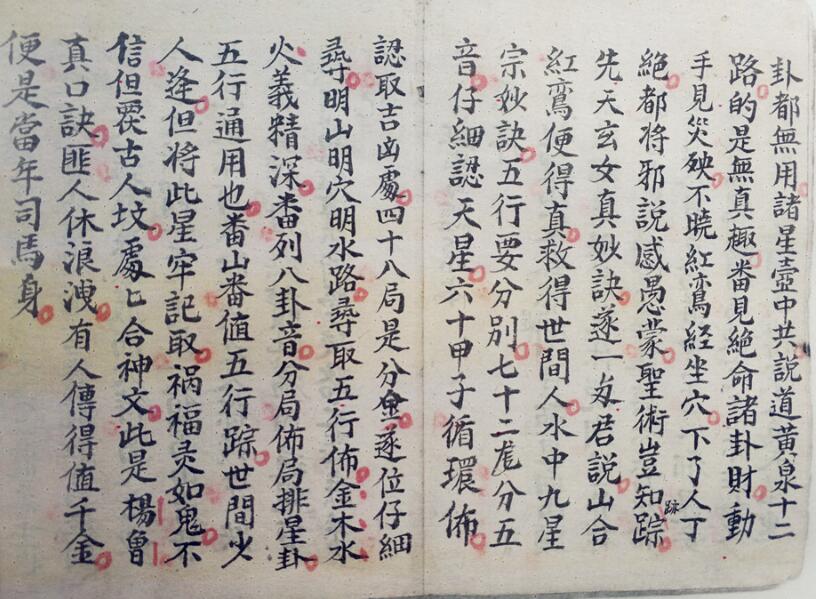 卦都無用諸星壺中共說道黃泉十二
路的是無真趣畨見絶命諸卦財動
手見災殃不曉紅鸞経坐穴下了人丁
絶都将邪說感愚蒙聖術豈知踪跡
先天玄女真妙訣遂一为君說山合
紅鸞便得真救得世間人水中九星
宗妙訣五行要分別七十二龍分五
音仔細認天星六十甲子循環佈
認取吉凶處四十八局是分金遂位仔細
尋明山明穴明水路尋取五行佈金木水
火義精深畨列八卦音分局佈局排星卦
五行通用也畨山番值五行踪世間少
人逢但将此星牢記取祸福灵如鬼不
信但覌古人坟處匕合神文此是楊曾
真口訣匪人休浪洩有人傳得值千金
便是當年司馬身